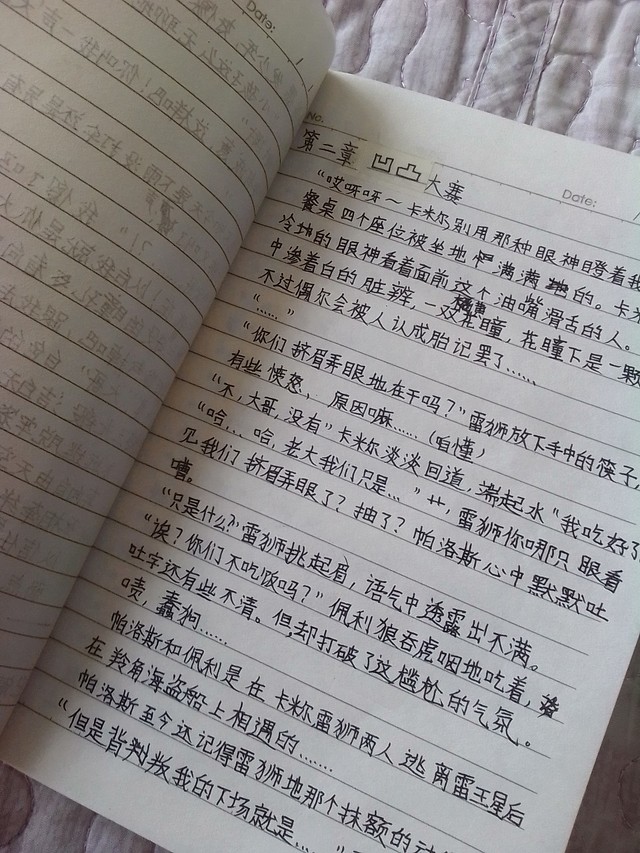 No.
Date:
第二章 凹凸大赛
“哎呀呀~卡米尔别用那种眼神瞪着我
餐桌四个座位被坐地满满的。卡米
冷地的眼神看着面前这个油嘴滑舌的人。
中渗着白的脏辫，一双花瞳，花瞳下是一颗
不过偶尔会被人认成胎记罢了……
“……”
“你们挤眉弄眼地在干吗？”雷狮放下手中的筷子，
有些愤怒，原因嘛……（咱懂）
“不，大哥，没有”卡米尔淡淡回道，端起水“我吃好了
“哈…哈，老大我们只是…”艹，雷狮你哪只眼看
见我们挤眉弄眼了？抽了？帕洛斯心中默默吐
嘈。
“只是什么？”雷狮挑起眉，语气中透露出不满。
“诶？你们不吃饭吗？”佩利狼吞虎咽地吃着，
吐字还有些不清。但却打破了这尴尬的气氛。
啧，蠢狗……
帕洛斯和佩利是在卡米尔雷狮两人逃离雷王星后
在羚角海盗船上相遇的……
帕洛斯至今还记得雷狮地那个扶额的动
“但是背判叛我的下场就是……”